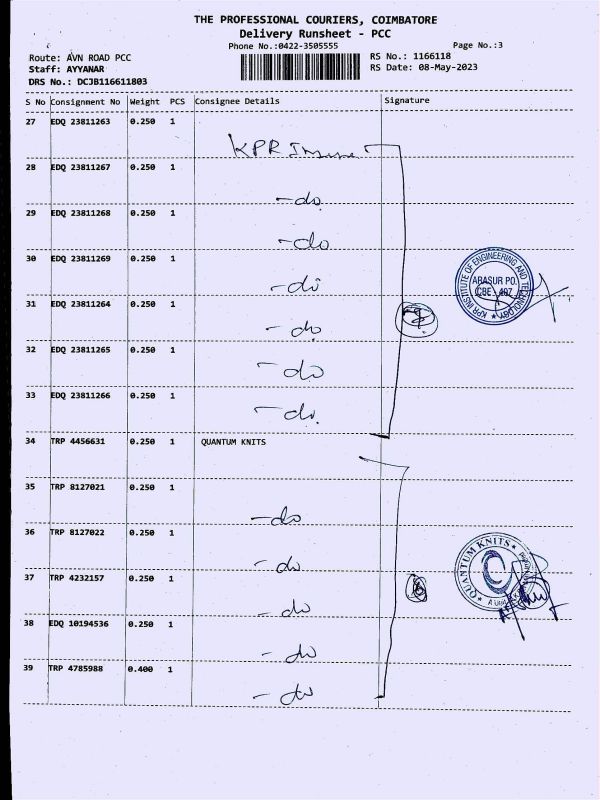 THE PROFESSIONAL COURIERS, COIMBATORE
Delivery Runsheet - PCC
Phone No.:0422-3505555 Page No.:3
Route: AVN ROAD PCC RS No.: 1166118
Staff: AYYANAR RS Date: 08-May-2023
DRS No.: DCJB116611803
S No Consignment No Weight PCS Consignee Details Signature
27 EDQ 23811263 0.250 1
KPR
28 EDQ 23811267 0.250 1
-do
29 EDQ 23811268 0.250 1
-do
30 EDQ 23811269 0.250 1
-do
31 EDQ 23811264 0.250 1
-do
32 EDQ 23811265 0.250 1
-do
33 EDQ 23811266 0.250 1
-do
KPR INSTITUTE OF ENGINEERING AND TECHNOLOGY
ARASUR PO.
CBE - 407
34 TRP 4456631 0.250 1 QUANTUM KNITS
35 TRP 8127021 0.250 1
-do
36 TRP 8127022 0.250 1
-do
37 TRP 4232157 0.250 1
-do
38 EDQ 10194536 0.250 1
-do
39 TRP 4785988 0.400 1
-do
QUANTUM KNITS